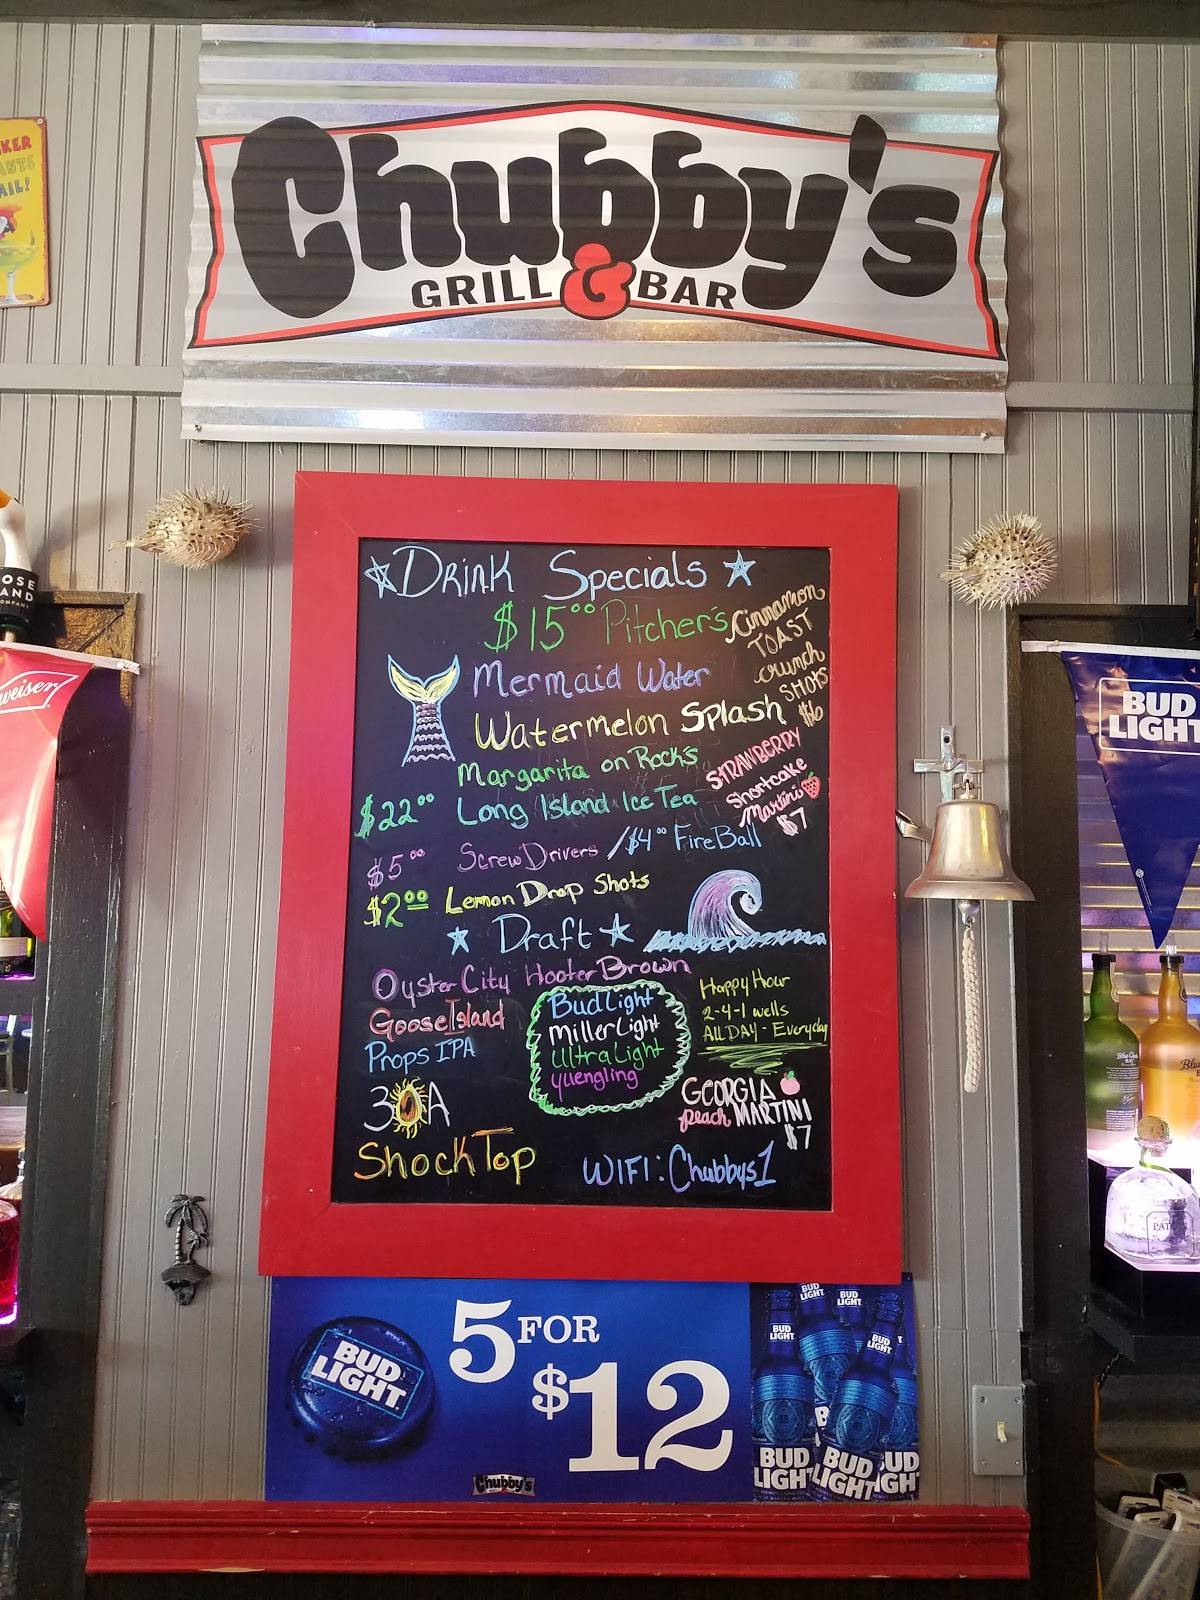 Chubby's
GRILL & BAR
KER
ANTS
AIL!
Drink Specials
$15°° Pitcher's
Cinnamon
TOAST
crunch
SHOTS
$6
Mermaid Water
Watermelon Splash
Margarita on Rock's
STRAWBERRY
Shortcake
Martini
$7
$22°° Long Island Ice Tea
$5°° Screw Drivers /$4°° FireBall
$2°° Lemon Drop Shots
Draft
Oyster City Hooter Brown
Goose Island
Props IPA
30A
Shock Top
Bud Light
Miller Light
Ultra Light
Yuengling
Happy Hour
2-4-1 wells
All DAY - Everyday
GEORGIA
peach MARTINI
$7
WIFI: Chubbys1
OSE
AND
COMPANY
weiser
BUD
LIGHT
PAT
BUD
LIGHT
5 FOR
$12
Chubby's
BUD
LIGHT
BUD
LIGHT
BUD
LIGHT
BUD
LIGHT
BUD
LIGH
BUD
LIGHT
UD
GH